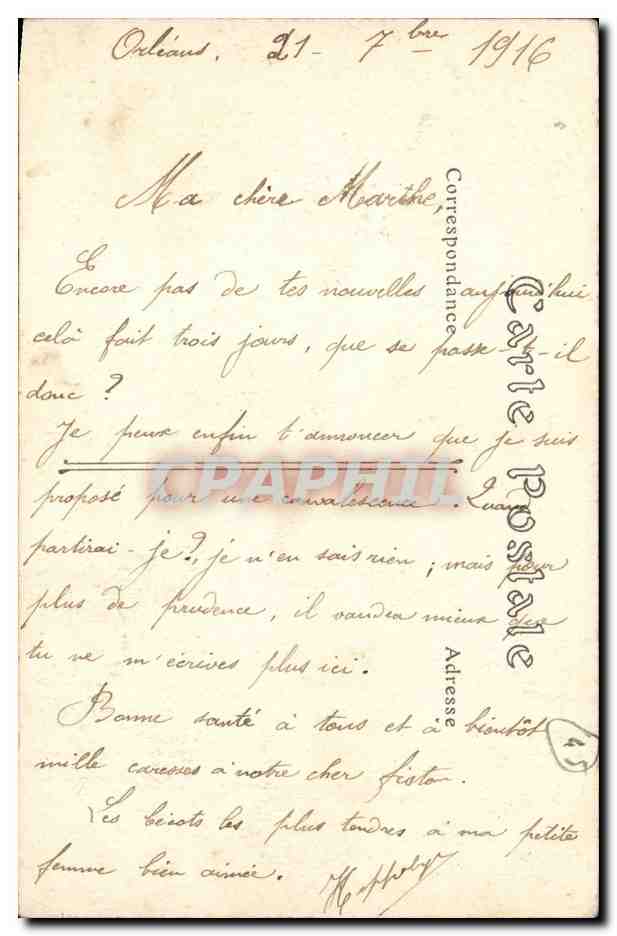 Orléans. 21 - 7bre 1916
Ma chère Marthe,
Encore pas de tes nouvelles aujourd'hui
celà fait trois jours, que se passe-t-il
donc ?
Je peux enfin t'annoncer que je suis
proposé pour une convalescence. Quand
partirai-je ?, je n'en sais rien ; mais pour
plus de prudence, il vaudra mieux que
tu ne m'écrives plus ici.
Bonne santé à tous et à bientôt
mille caresses à notre cher fiston.
Les bécots les plus tendres à ma petite
femme bien aimée.
Correspondance
Carte Postale
Adresse
CPAPHIL
45